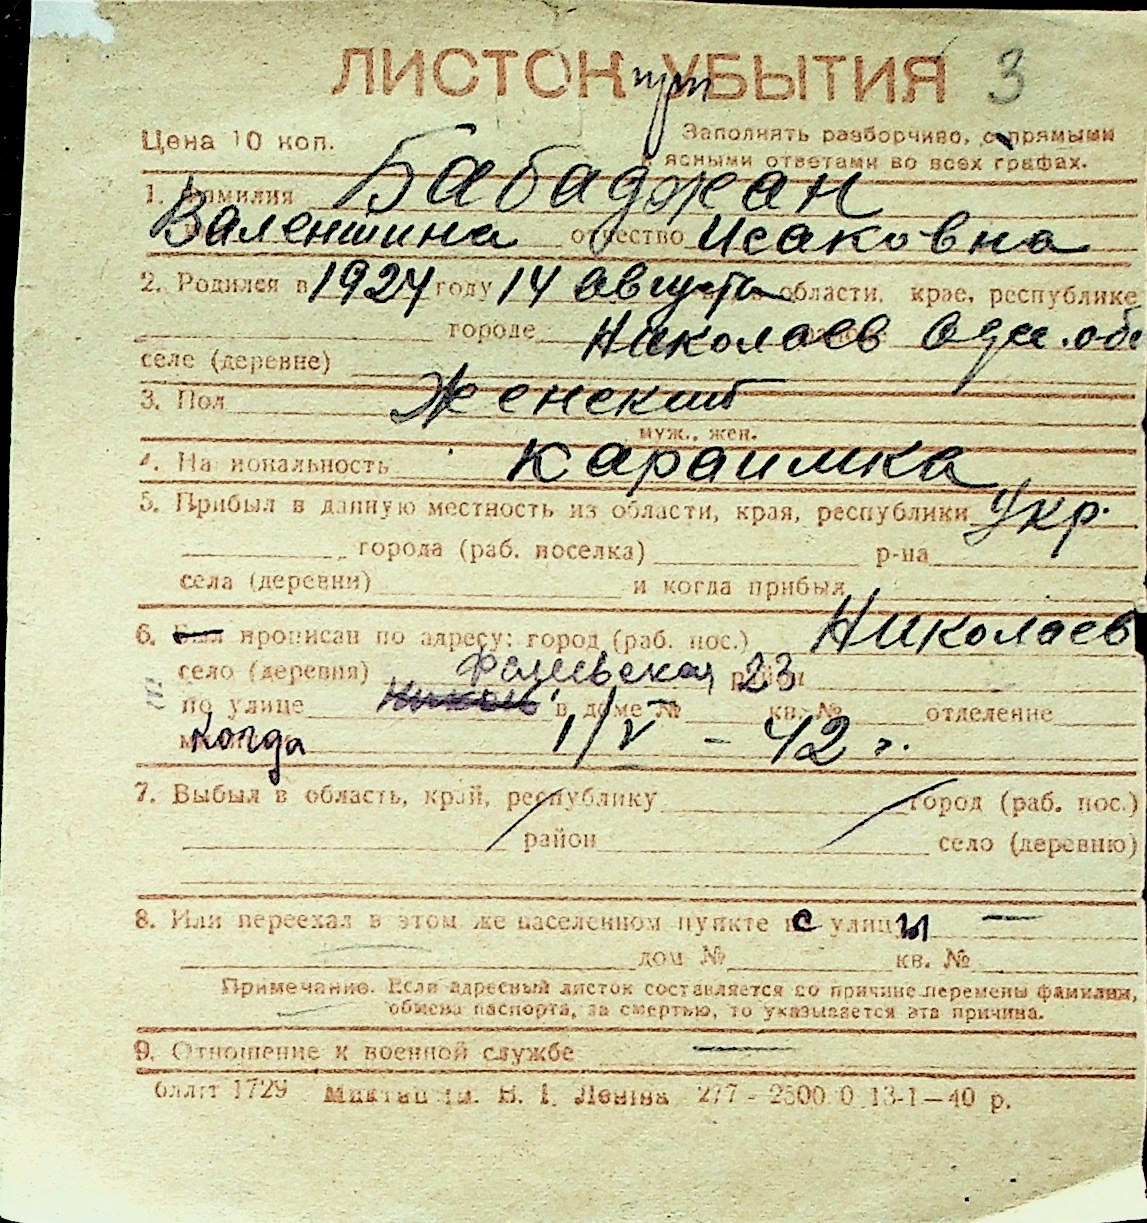 ЛИСТОК УБЫТИЯ 3
Цена 10 коп. Заполнять разборчиво, с прямыми
и ясными ответами во всех графах.
1. Фамилия Бабаджан
Валентина отчество Исаковна
2. Родился в 1924 году 14 августа области, крае, республике
городе Николаев Одес. об
селе (деревне)
3. Пол Женский
муж., жен.
4. Национальность караимка
5. Прибыл в данную местность из области, края, республики Укр.
города (раб. поселка) р-на
села (деревни) и когда прибыл
6. Был прописан по адресу: город (раб. пос.) Николаев
село (деревня) 23 район
по улице в доме № кв. № отделение
когда 1/V - 42 г.
7. Выбыл в область, край, республику город (раб. пос.)
район село (деревню)
8. Или переехал в этом же населенном пункте с улицы —
дом № кв. №
Примечание. Если адресный листок составляется по причине перемены фамилии,
обмена паспорта, за смертью, то указывается эта причина.
9. Отношение к военной службе —
1729 Леніна 277 - 13-1—40 р.